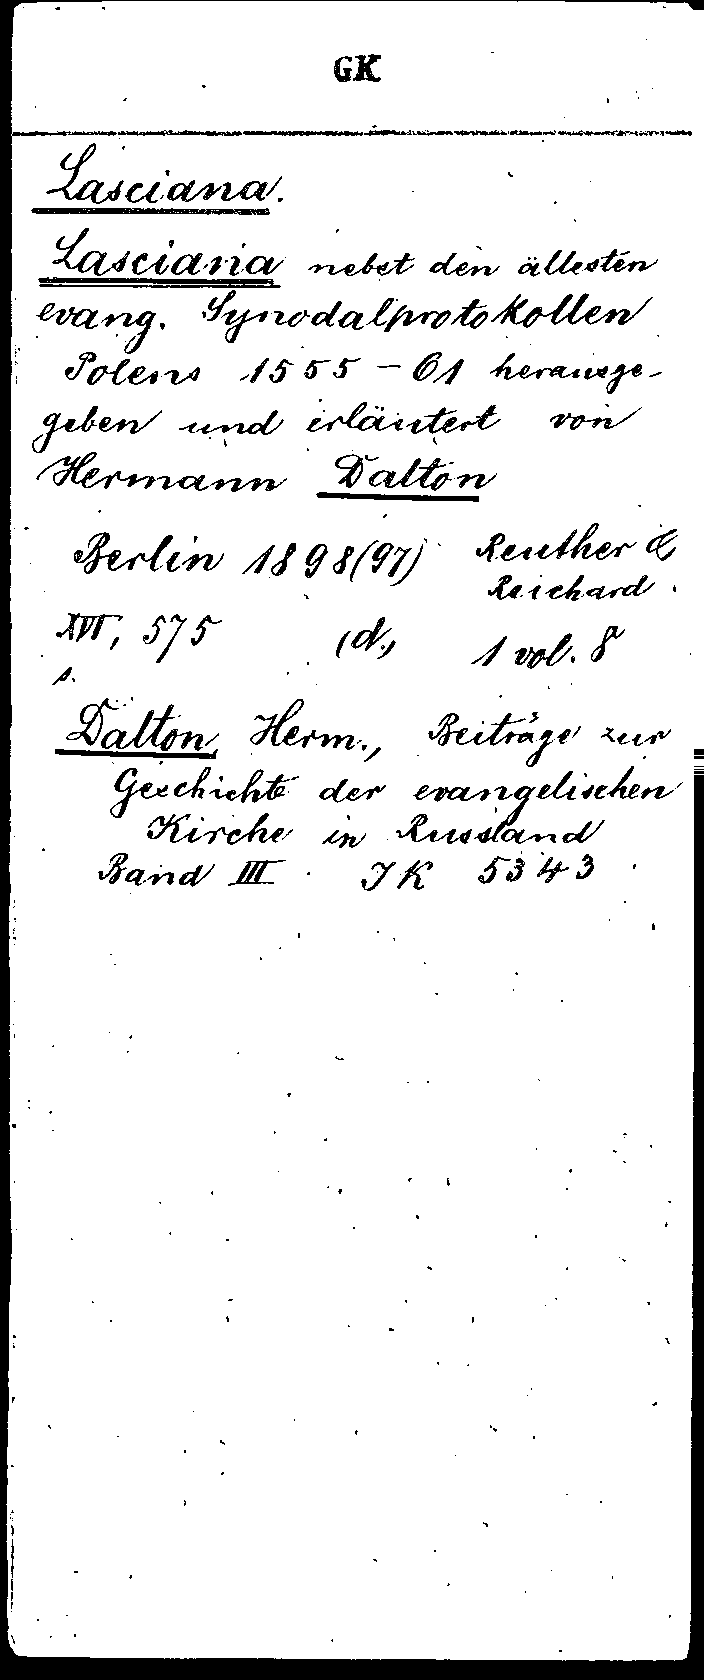 GK
Lasciana.
Lasciana nebst den ällesten
evang. Synodalprotokollen
Polens 1555-61 herausge-
geben und erläutert von
Hermann Dalton
Berlin 1898(97) Reuther &
Reichard.
XVI, 575 (d.) 1 vol. 8
s.
Dalton, Herm., Beiträge zur
Geschichte der evangelischen
Kirche in Russland
Band III JK 5343